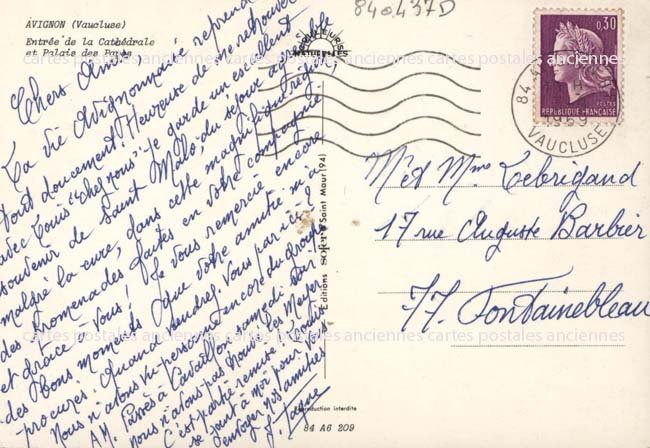 AVIGNON (Vaucluse)
Entrée de la Cathédrale
et Palais des Papes
840437D
Chers Amis,
La vie Avignonnaise reprend
tout doucement. Heureuse de me retrouver
avec Louis "chez nous" je garde un excellent
souvenir de Saint Malo, du séjour agréable
malgré la cure, dans cette magnifique région,
des promenades faites en votre compagnie
et grâce à vous! Je vous remercie encore
des bons moments que votre amitié m'a
procurés. Quand viendrez vous par ici?
Nous n'avons vu personne encore du groupe
A.M. Passés à Cavaillon samedi
nous n'avons pas trouvé les Meyer
C'est partie remise.
se joint à moi pour
envoyer nos amitiés
Editions S.O.F.-1-9 Saint Maur (94)
Reproduction interdite
84 A6 209
0,30
POSTES
REPUBLIQUE FRANÇAISE
84
1969
VAUCLUSE
M et Mme Lebrigand
17 rue Auguste Barbier
77. Fontainebleau
cartes postales anciennes cartes postales anciennes cartes postales anciennes
cartes postales anciennes cartes postales anciennes cartes postales anciennes